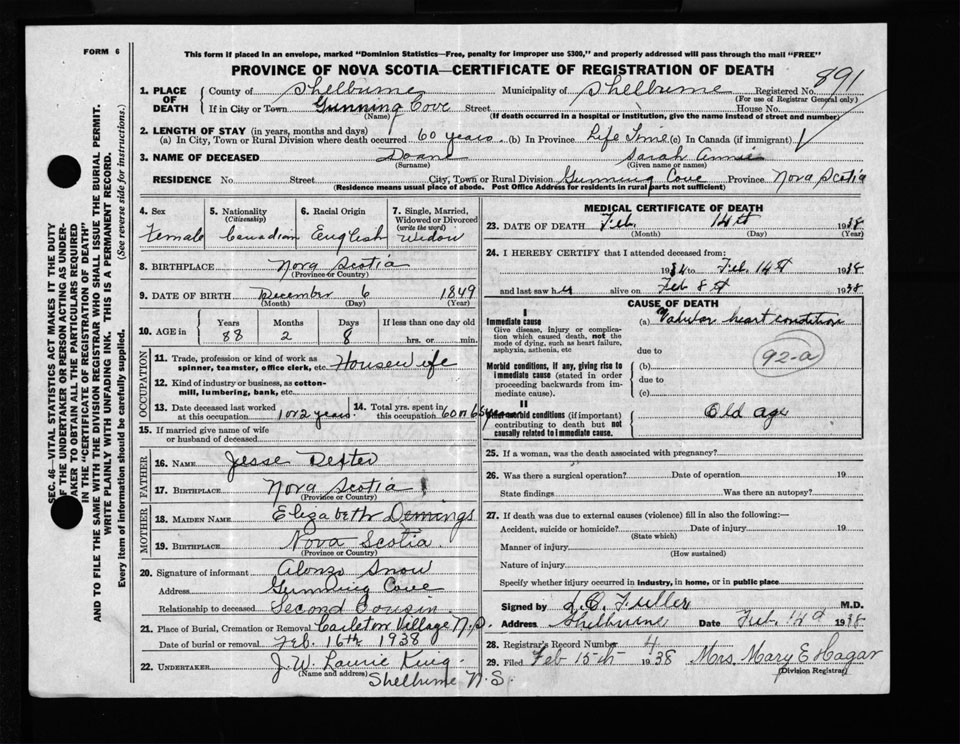 FORM 6
This form if placed in an envelope, marked "Dominion Statistics—Free, penalty for improper use $300," and properly addressed will pass through the mail "FREE"
PROVINCE OF NOVA SCOTIA—CERTIFICATE OF REGISTRATION OF DEATH
891
1. PLACE OF DEATH County of Shelburne Municipality of Shelburne Registered No.
(For use of Registrar General only)
If in City or Town Gunning Cove Street House No.
(Name) (If death occurred in a hospital or institution, give the name instead of street and number)
2. LENGTH OF STAY (in years, months and days)
(a) In City, Town or Rural Division where death occurred 60 years. (b) In Province Life Time (c) In Canada (if immigrant)
3. NAME OF DECEASED Doane Sarah Annie
(Surname) (Given name or names)
RESIDENCE No. Street City, Town or Rural Division Gunning Cove Province Nova Scotia
(Residence means usual place of abode. Post Office Address for residents in rural parts not sufficient)
4. Sex 5. Nationality (Citizenship) 6. Racial Origin 7. Single, Married, Widowed or Divorced (write the word)
Female Canadian English Widow
8. BIRTHPLACE Nova Scotia
(Province or Country)
9. DATE OF BIRTH December 6 1849
(Month) (Day) (Year)
10. AGE in Years Months Days If less than one day old
88 2 8 hrs. or min.
OCCUPATION
11. Trade, profession or kind of work as spinner, teamster, office clerk, etc. Housewife
12. Kind of industry or business, as cotton-mill, lumbering, bank, etc.
13. Date deceased last worked at this occupation 1 or 2 years. 14. Total yrs. spent in this occupation
15. If married give name of wife or husband of deceased
FATHER
16. NAME Jesse Dexter
17. BIRTHPLACE Nova Scotia
(Province or Country)
MOTHER
18. MAIDEN NAME Elizabeth Demings
19. BIRTHPLACE Nova Scotia.
(Province or Country)
20. Signature of informant Alonzo Snow
Address Gunning Cove
Relationship to deceased Second Cousin.
21. Place of Burial, Cremation or Removal Carleton Village N.S.
Date of burial or removal Feb. 16th 1938
22. UNDERTAKER J. W. Laurie King.
(Name and address)
Shelburne N.S.
MEDICAL CERTIFICATE OF DEATH
23. DATE OF DEATH Feb. 14th 1938
(Month) (Day) (Year)
24. I HEREBY CERTIFY that I attended deceased from:
19 to Feb. 14th 1938
and last saw h alive on Feb 8th 1938
CAUSE OF DEATH
I
Immediate cause (a) Valvular heart condition
Give disease, injury or complication which caused death, not the mode of dying, such as heart failure, asphyxia, asthenia, etc
due to
92-a
Morbid conditions, if any, giving rise to immediate cause (stated in order proceeding backwards from immediate cause). (b)
due to
(c)
II
Other morbid conditions (if important) contributing to death but not causally related to immediate cause. Old age
25. If a woman, was the death associated with pregnancy?
26. Was there a surgical operation? Date of operation 19
State findings Was there an autopsy?
27. If death was due to external causes (violence) fill in also the following:—
Accident, suicide or homicide? Date of injury 19
(State which)
Manner of injury
(How sustained)
Nature of injury
Specify whether injury occurred in industry, in home, or in public place
Signed by L. O. Fuller M.D.
Address Shelburne Date Feb. 14th 1938
28. Registrar's Record Number 4
29. Filed Feb 15th 1938 Mrs. Mary E Hagar
(Division Registrar)
SEC. 46—VITAL STATISTICS ACT MAKES IT THE DUTY
OF THE UNDERTAKER OR PERSON ACTING AS UNDER-
TAKER TO OBTAIN ALL THE PARTICULARS REQUIRED
IN THE "CERTIFICATE OF REGISTRATION OF DEATH"
AND TO FILE THE SAME WITH THE DIVISION REGISTRAR WHO SHALL ISSUE THE BURIAL PERMIT.
WRITE PLAINLY WITH UNFADING INK. THIS IS A PERMANENT RECORD.
Every item of information should be carefully supplied. (See reverse side for instructions.)